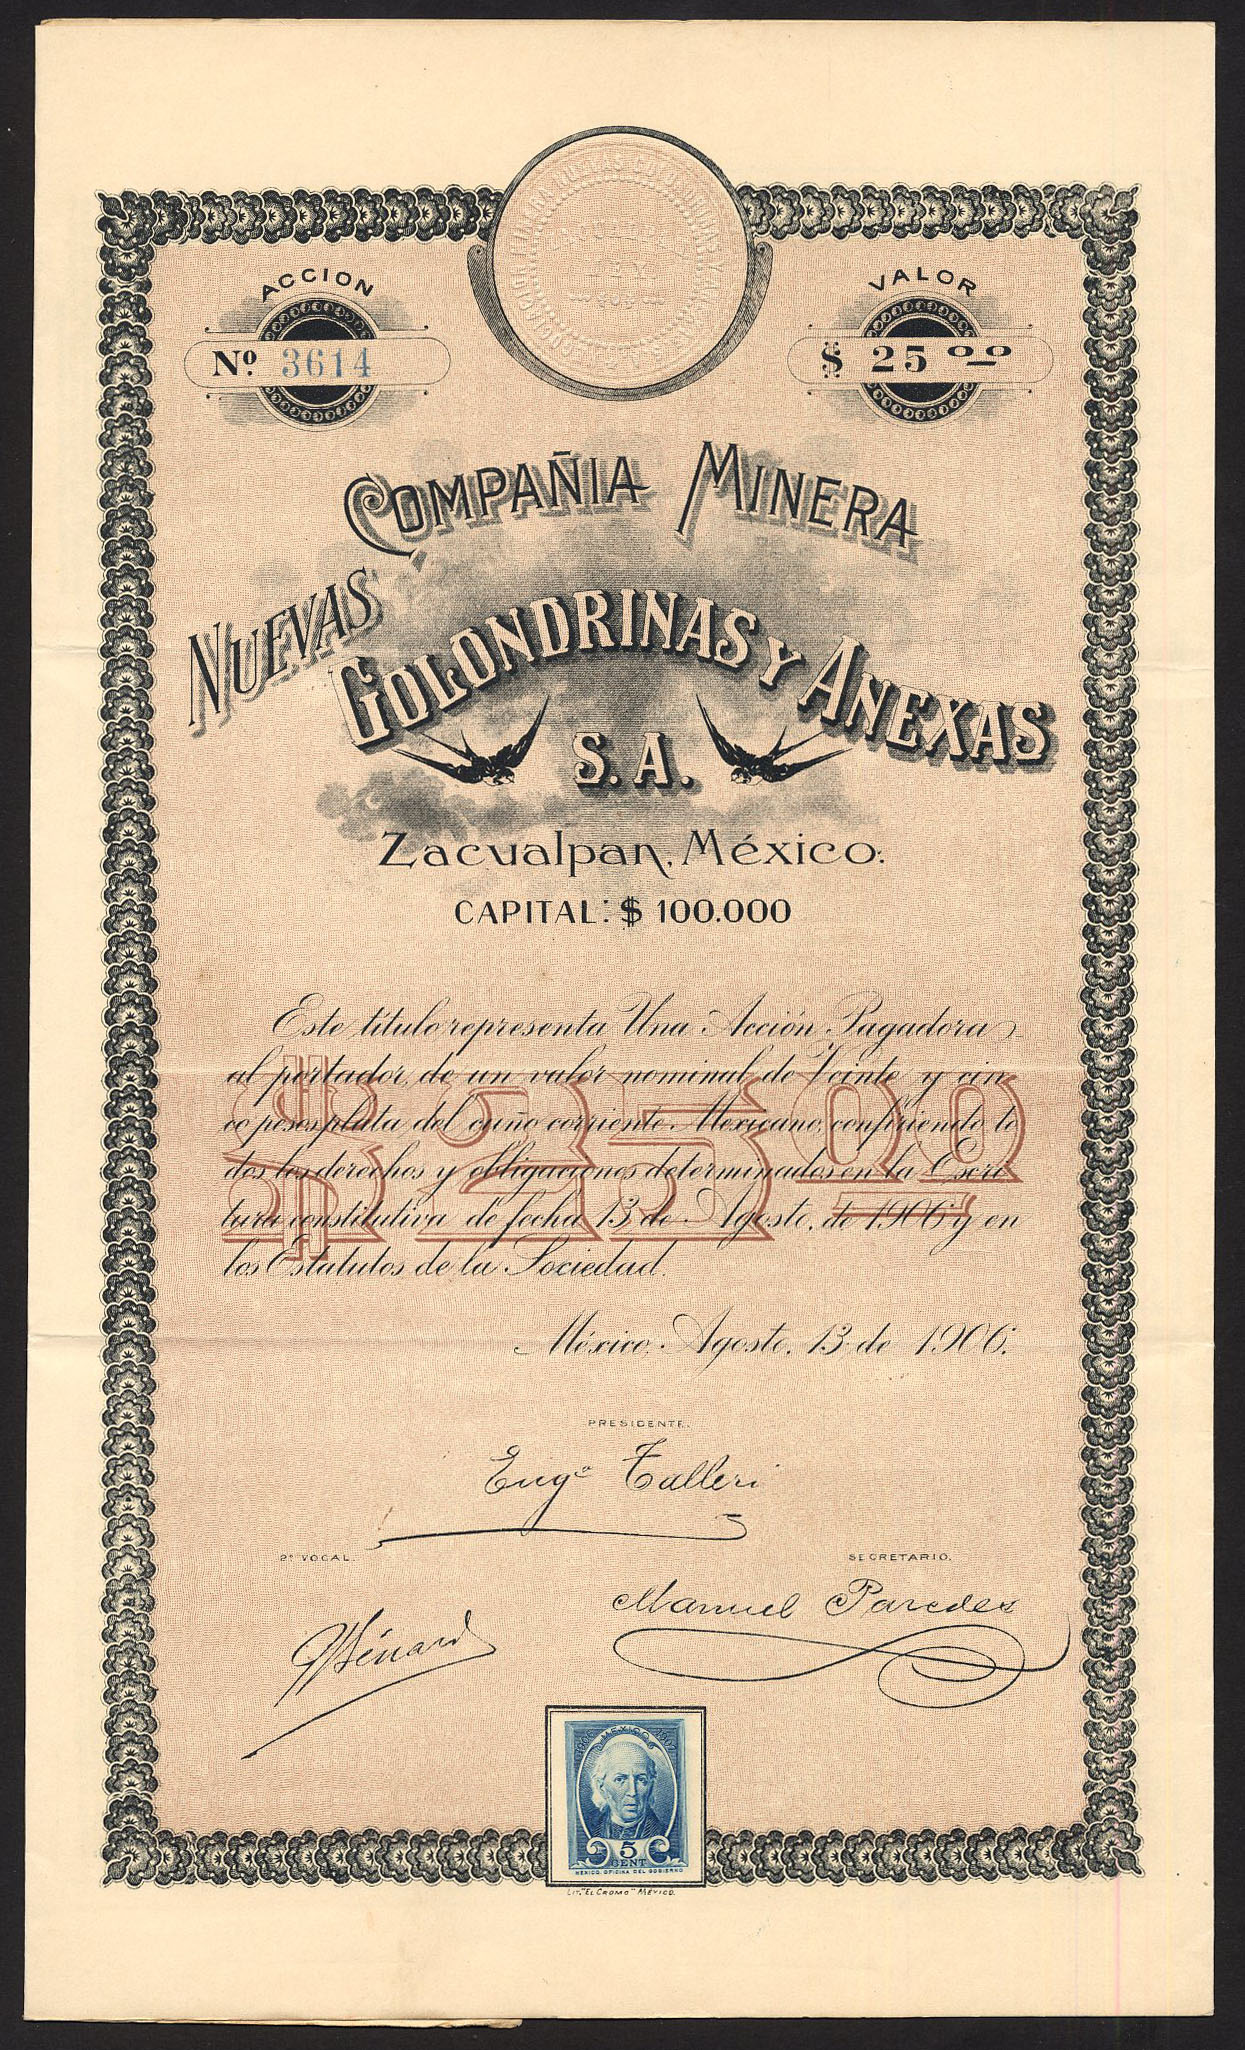 ACCION
Nº. 3614
VALOR
$ 25 00
COMPAÑIA MINERA
NUEVAS GOLONDRINAS Y ANEXAS
S. A.
Zacualpan, México.
CAPITAL: $ 100.000
$ 25 00
Este título representa Una Acción Pagadora
al portador, de un valor nominal de Veinte y cin
co pesos plata del cuño corriente Mexicano, confiriendo to
dos los derechos y obligaciones determinados en la Escri
tura constitutiva de fecha 13 de Agosto, de 1906 y en
los Estatutos de la Sociedad.
México, Agosto, 13 de 1906.
PRESIDENTE.
Eugº Talleri
2º VOCAL.
SECRETARIO.
Manuel Paredes
Bénard
MEXICO
5
CENT
MEXICO. OFICINA DEL GOBIERNO
LIT. "EL CROMO" MEXICO.